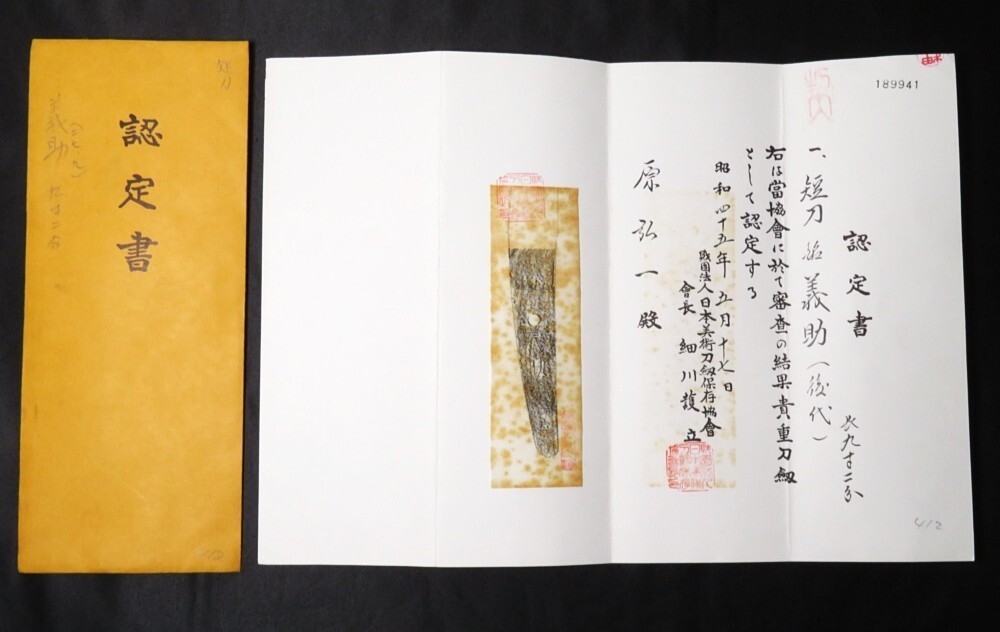 認定書
短刀
義助
189941
認定書
一、短刀 銘 義助（後代）
長九寸二分
右は當協會に於て審査の結果貴重刀劔
として認定する
昭和四十五年 五月十七日
財団法人日本美術刀劔保存協會
會長 細川護立
原弘一殿
412